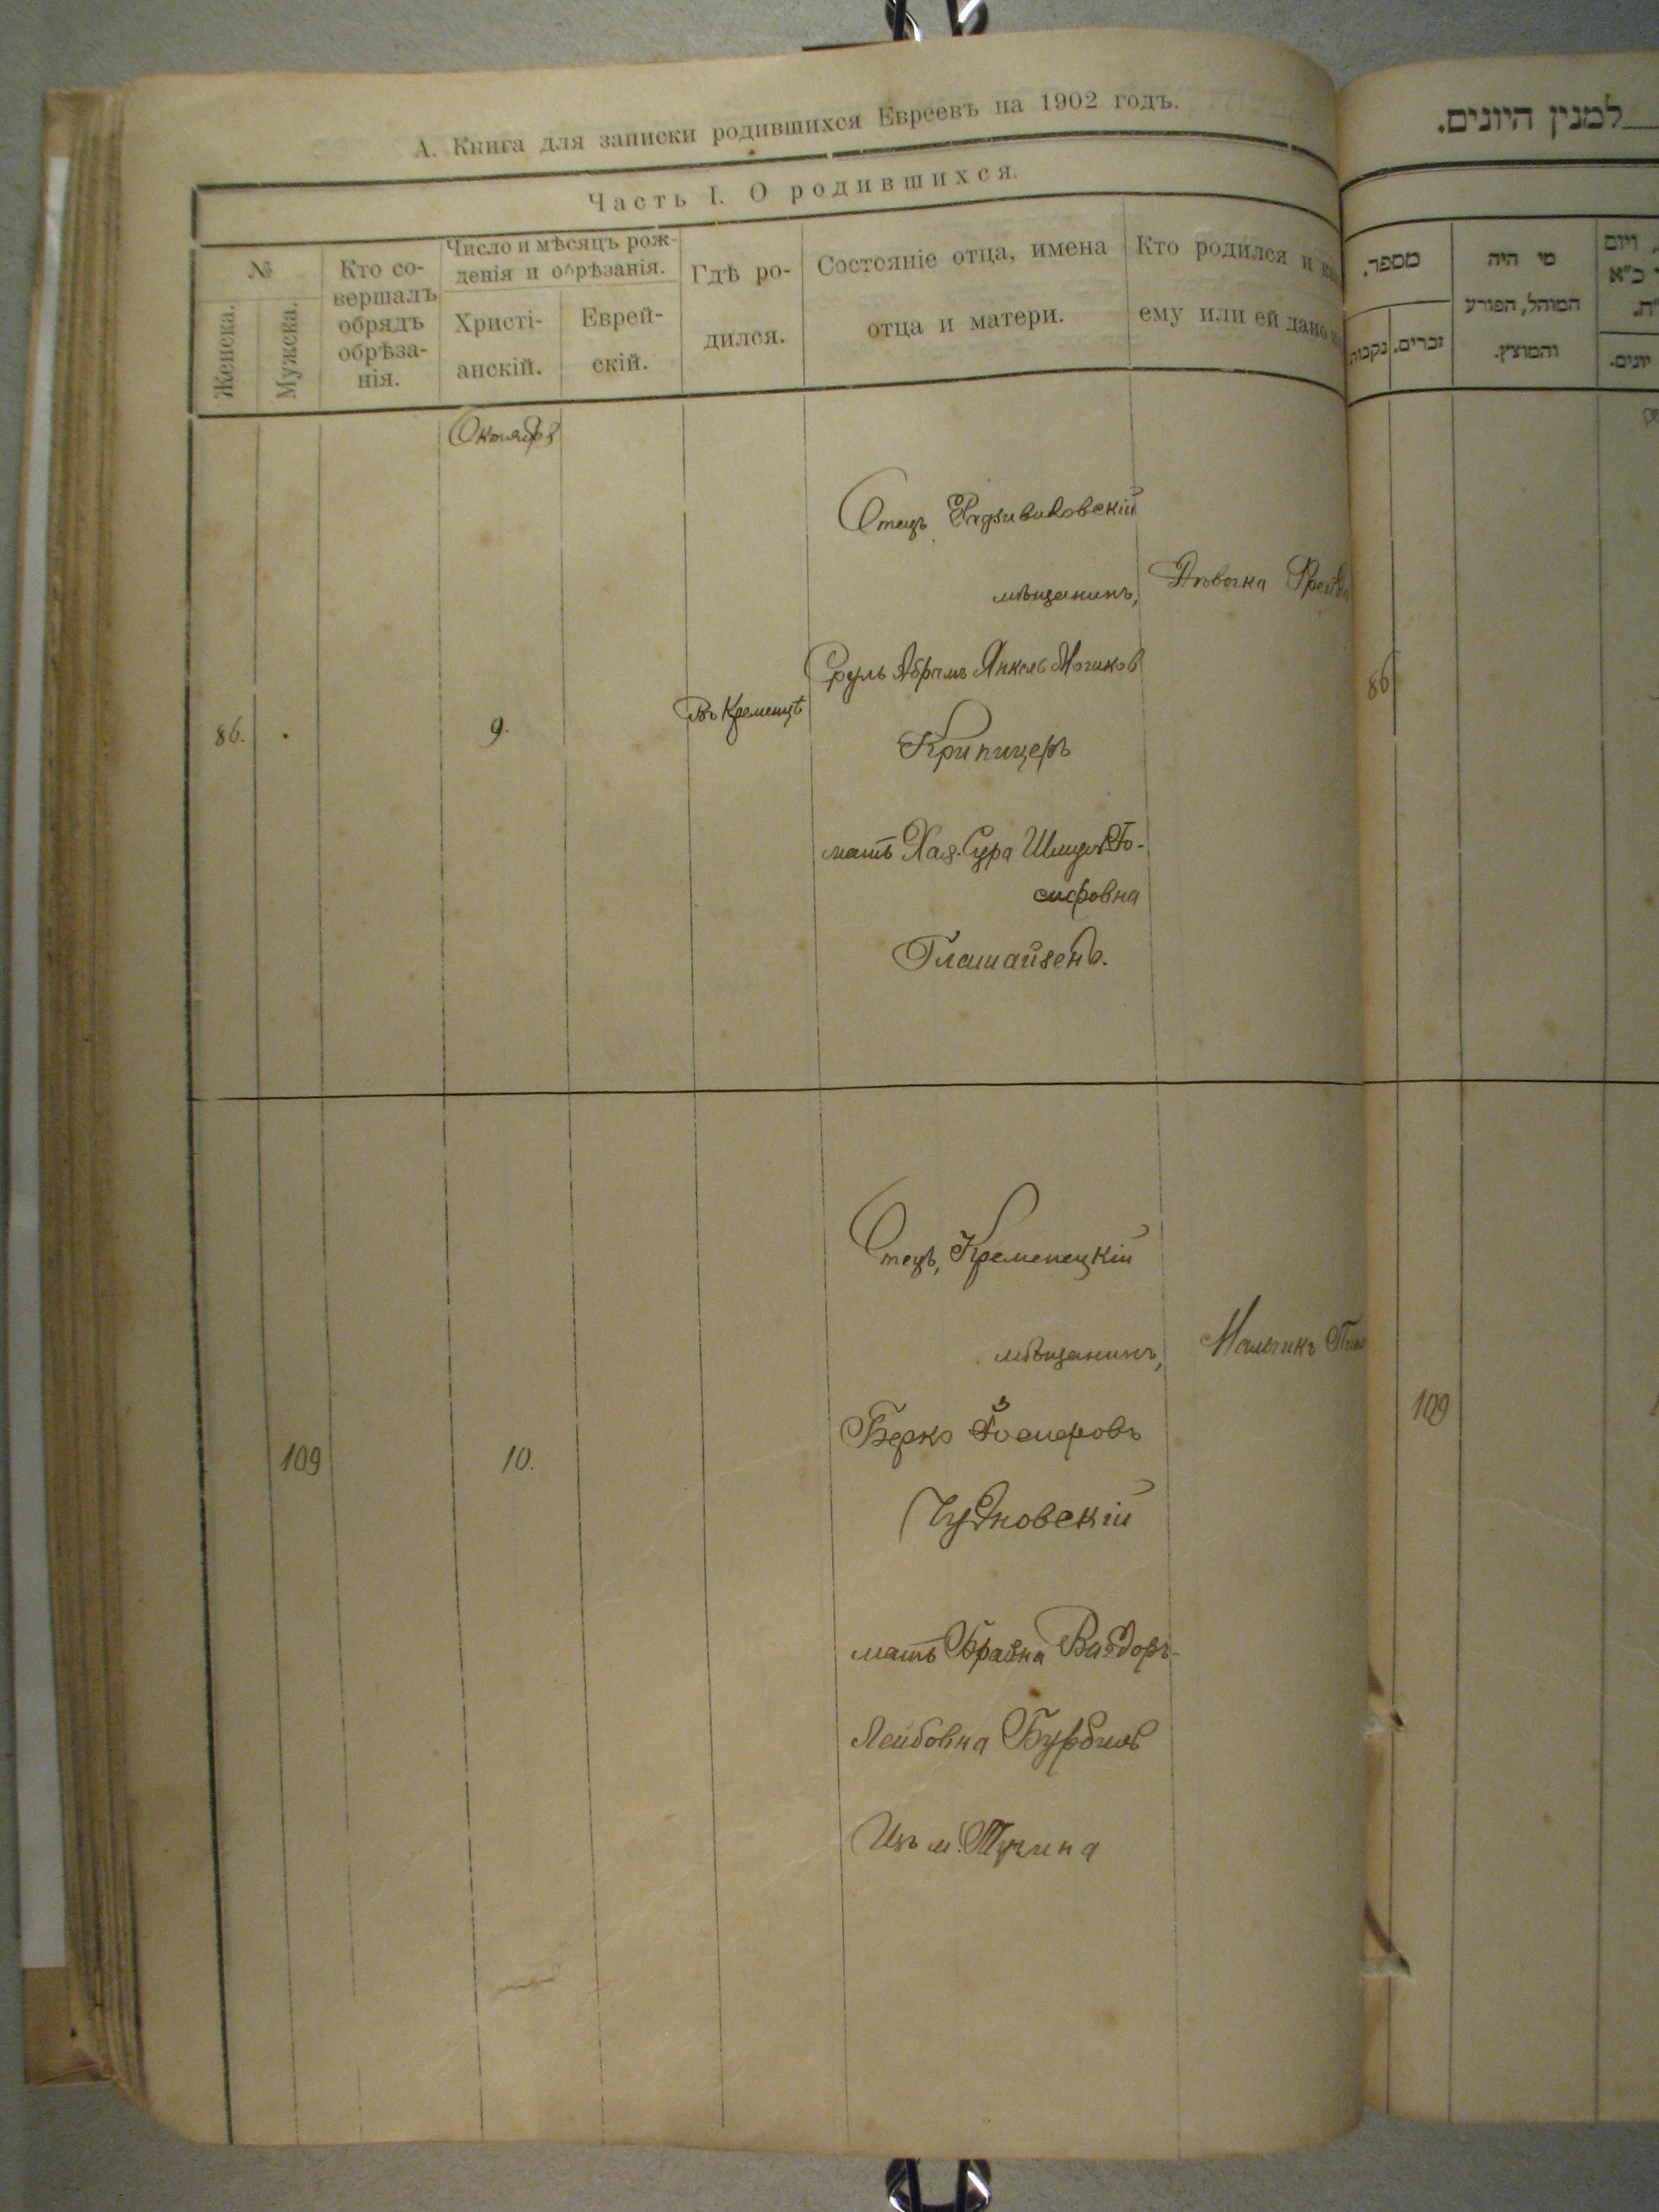 А. Книга для записки родившихся Евреевъ на 1902 годъ.
Часть I. О родившихся.
№
Женска.
Мужска.
Кто со-
вершалъ
обрядъ
обрѣза-
нія.
Число и мѣсяцъ рож-
денія и обрѣзанія.
Христі-
анскій.
Еврей-
скій.
Гдѣ ро-
дился.
Состояніе отца, имена
отца и матери.
Кто родился и
ему или ей дано
Октября
86.
9.
Въ Кременцѣ
Отецъ Радзивиловскій
мѣщанинъ,
Сруль Абрамъ Янкель
Крипицеръ
мать Хая-Сура Іо-
сифовна
Глашайзенъ.
Дѣвочка
109
10.
Отецъ, Кременецкій
мѣщанинъ,
Берко Іосифовъ
Чудновскій
мать
Лейбовна
Изъ м. Тучина
Мальчикъ
למנין היונים.
מספר.
זכרים.
נקבות
מי היה
המוהל, הפורע
והמוצץ.
ויום
כ"א
יונים.
86
109